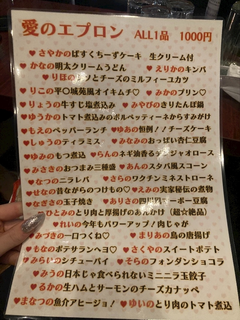 愛のエプロン ALL1品 1000円
♥さやかのばすくちーずケーキ 生クリーム付
♥かなの明太クリームうどん ♥えりかのキンパ
♥りほのシソとチーズのミルフィーユカツ
♥りこの平♡城苑風オイキムチ♡ ♥みかのプリン♡
♥りょうの牛すじ塩煮込み ♥みやびのきりたんぽ鍋
♥ゆうかのトマト煮込みのポルペッティーネからすみがけ
♥もえのペッパーランチ ♥ゆあの恒例♪!チーズケーキ
♥しゅうのティラミス ♥みなみのおっぱい杏仁豆腐
♥ゆみのもつ煮込 ♥らんのネギ油香るジャージャオロース
♥みさきのおつまみ三種盛 ♥あんのスタバ風スコーン
♥なつのニラレバ ♥さらのワクチンミネストローネ
♥せなの昔ながらのつけもの♡ ♥えみの実家秘伝の煮物
♥なぎさの玉子焼き ♥ありさの四川風マーボー豆腐
♥ひとみのとり肉と厚揚げのあんかけ(超☆絶品)
♥れいの今年もパワーアップ!肉じゃが
♥みづきの一口つくね♡ ♥まりあの鳥の唐揚げ
♥もなのポテサランヘヨ♡ ♥さくやのスイートポテト
♥みらいのシチューパイ ♥そらのフォンダンショコラ
♥みうの日本じゃ食べられないミニニラ玉餃子
♥るかの生ハムとサーモンのチーズカナッペ
♥まなつの魚介アヒージョ! ♥ゆいのとり肉のトマト煮込